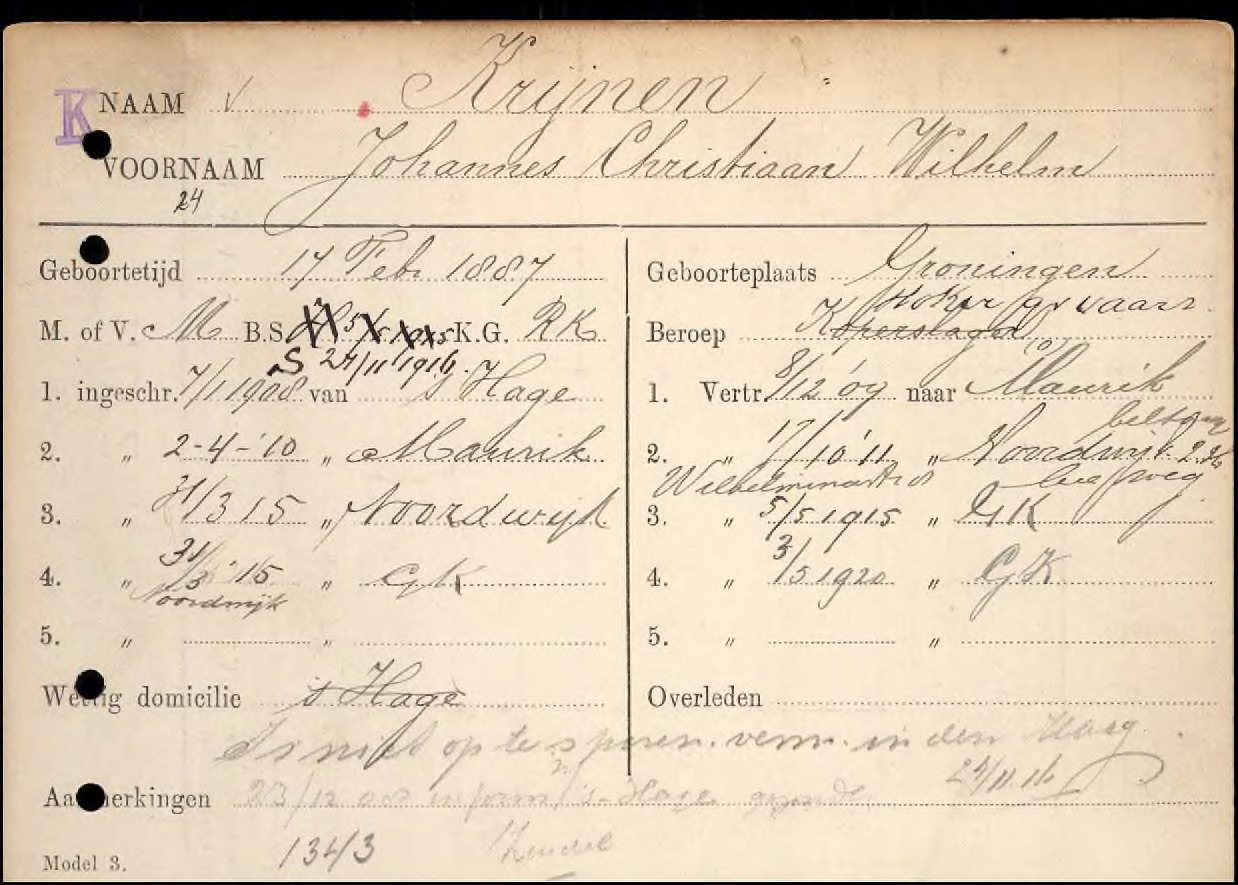 K NAAM v Krijnen
VOORNAAM Johannes Christiaan Wilhelm
24
Geboortetijd 17 Feb. 1887
Geboorteplaats Groningen
Stoker gr vaart
M. of V. M B.S. K.G. RK
Beroep Koperslager
S 24/11 1916.
1. ingeschr. 7/1 1908 van s Hage
1. Vertr. 8/12 '09 naar Maurik
2. „ 2-4-'10 „ Maurik
2. „ 17/10 '11 „ Noordwijk
Wilhelminastr
3. „ 31/3 15 „ Noordwijk
3. „ 5/5 1915 „ GK
4. „ 31/3 '15 „ GK
Noordwijk
4. „ 3/5 1920 „ GK
5. „ „
5. „ „
Wettig domicilie s Hage
Overleden
Is niet op te sporen. verm. in den Haag.
24/11.16
Aanmerkingen 23/12 s-Hage
134/3
Model 3.